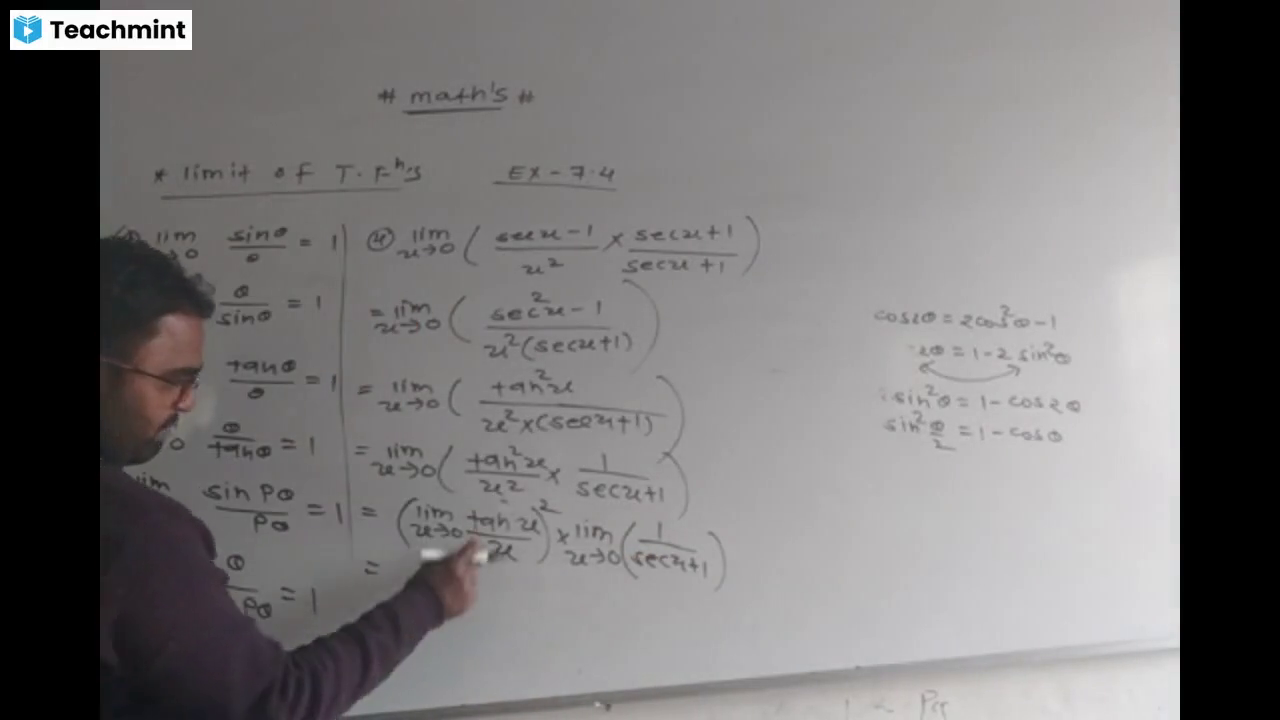 Teachmint
# math's #
* limit of T. Fⁿ's EX - 7.4
lim sinθ/θ = 1
θ/sinθ = 1
tanθ/θ = 1
θ/tanθ = 1
sin Pθ/Pθ = 1
θ/Pθ = 1
④ lim x→0 ( secx-1/x² × secx+1/secx+1 )
= lim x→0 ( sec²x-1/x²(secx+1) )
= lim x→0 ( tan²x/x²×(secx+1) )
= lim x→0 ( tan²x/x² × 1/secx+1 )
= ( lim x→0 tanx/x )² × lim x→0 ( 1/secx+1 )
=
cos2θ = 2cos²θ-1
2θ = 1-2 sin²θ
sin²θ = 1-cos2θ
sin²θ/2 = 1-cosθ